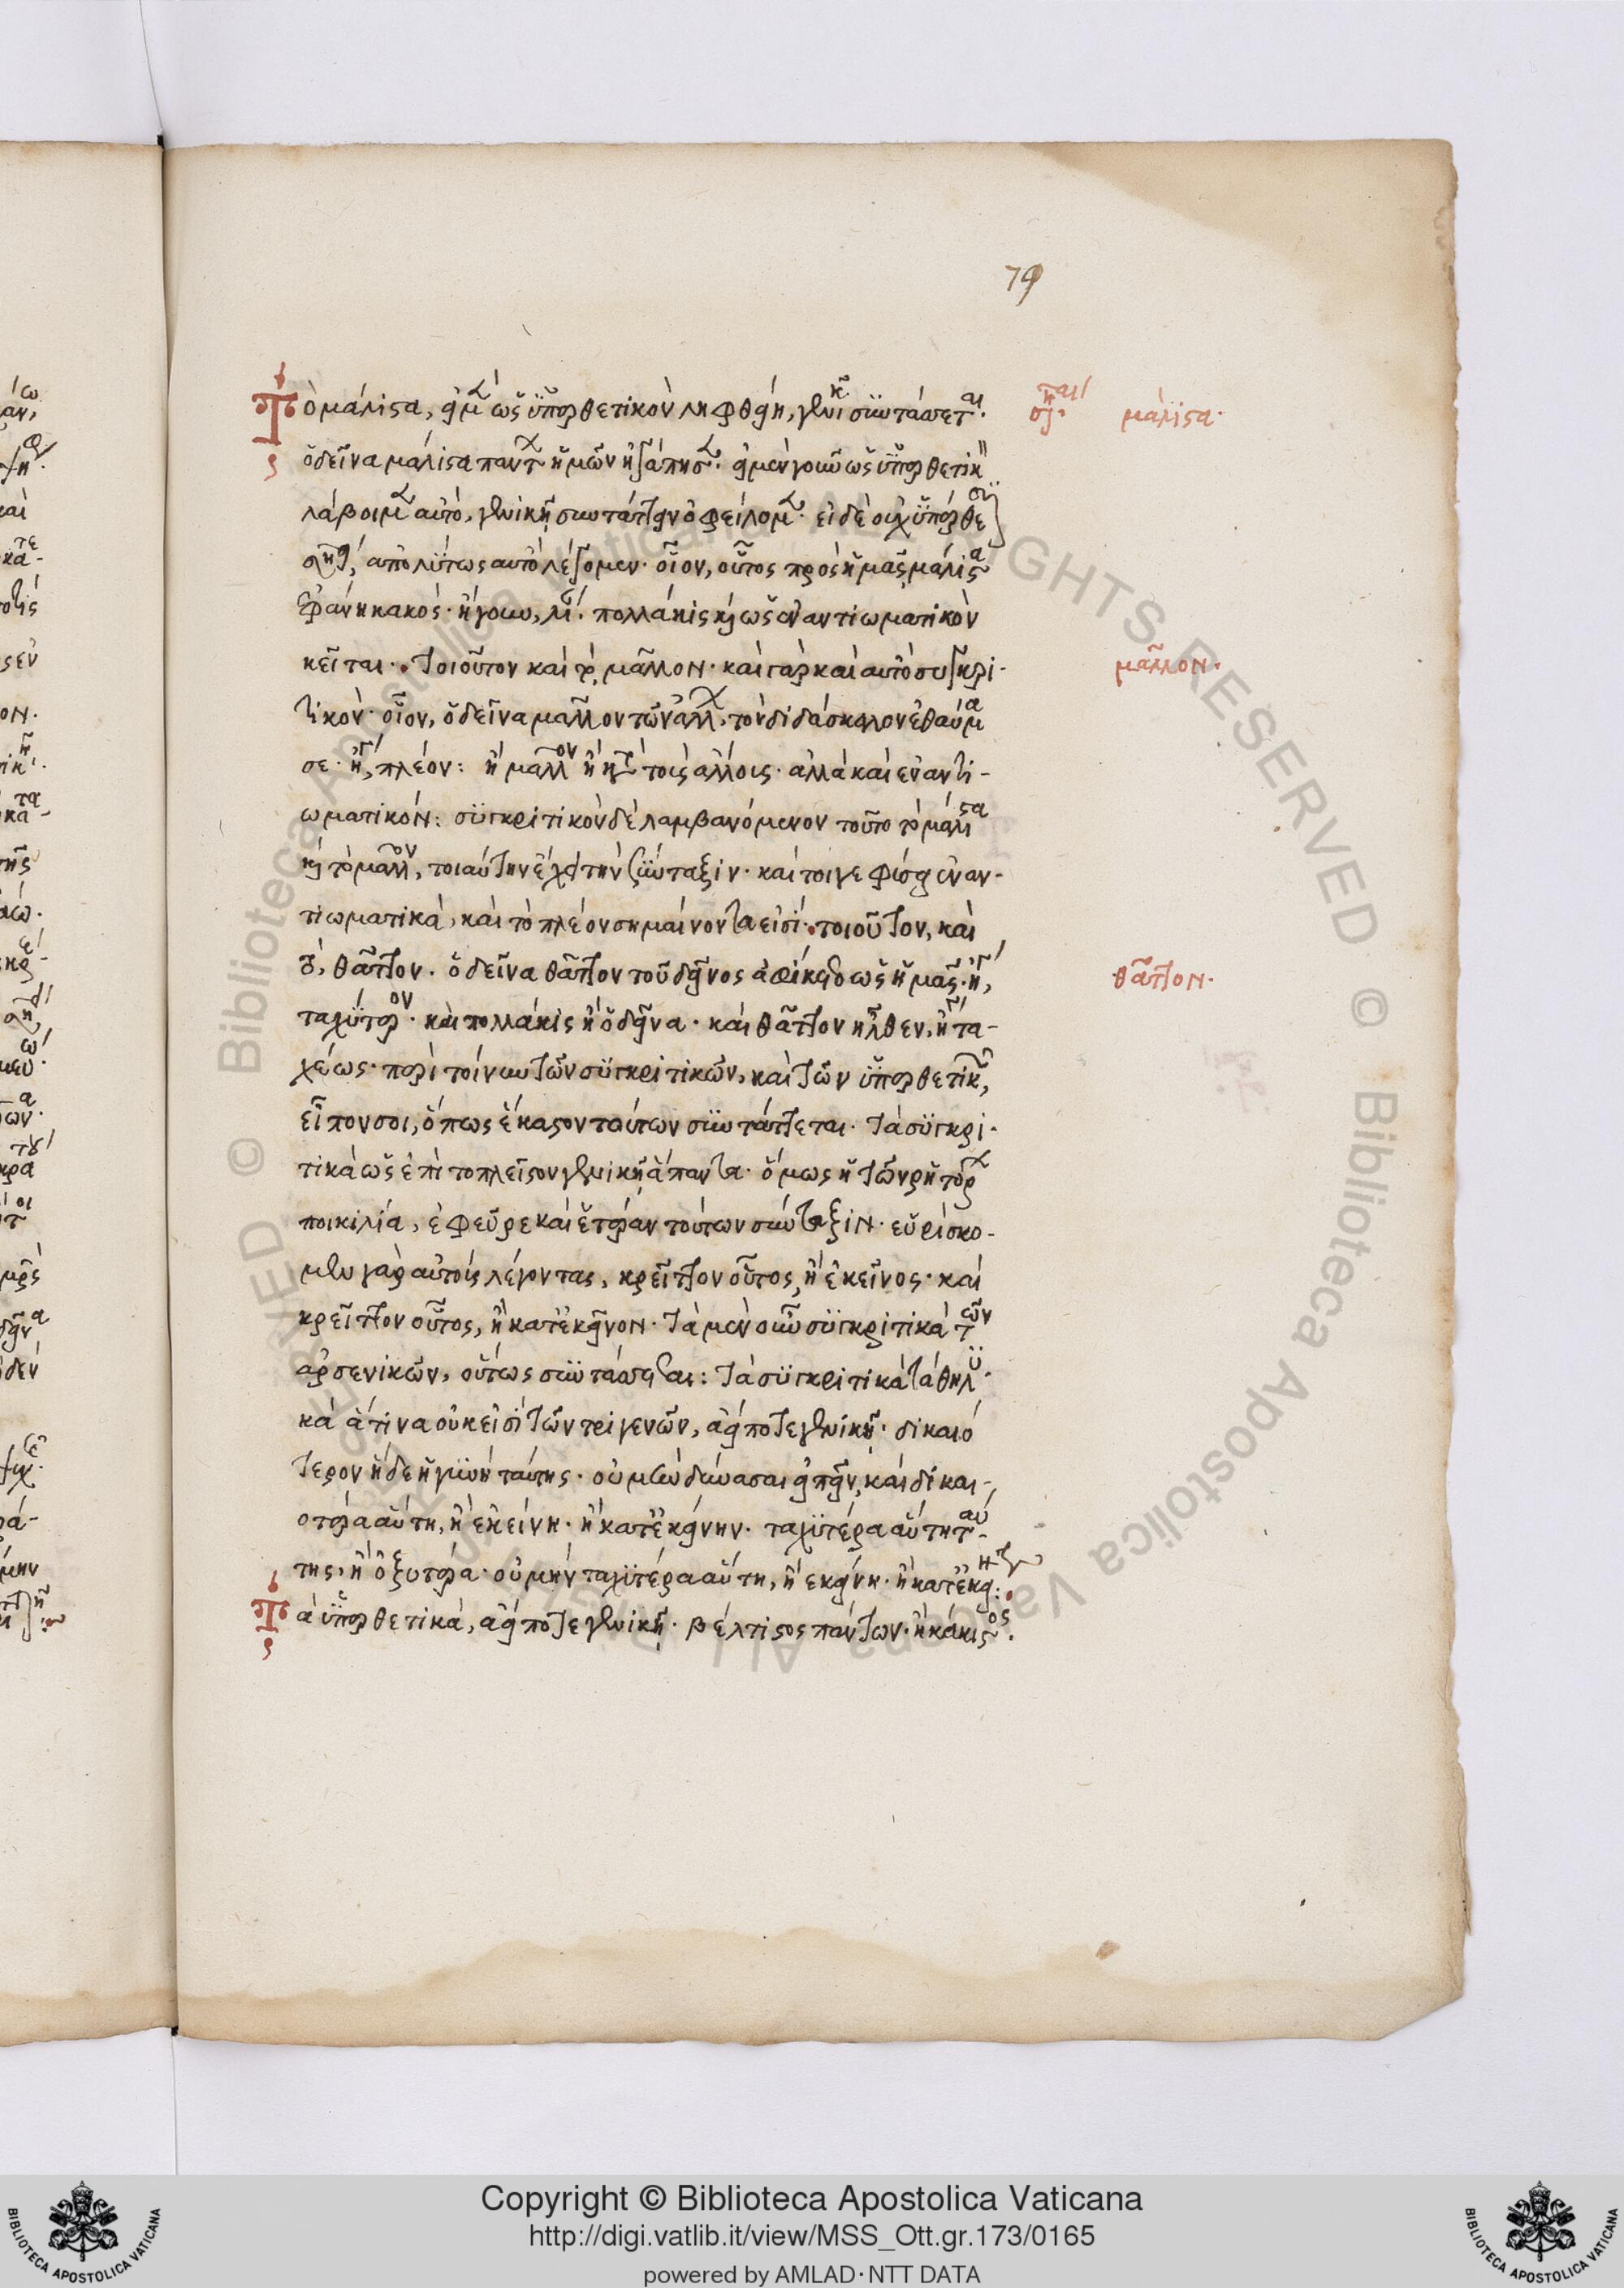 79
Τὸ μάλιστα, εἰ μὲν ὡς ὑπερθετικὸν ληφθείη, γενικῇ συντάσσεται·
σημείωσαι μάλιστα·
ὁ δεῖνα μάλιστα πάντων ἡμῶν ἠγάπησεν· εἰ μὲν γοῦν ὡς ὑπερθετικὸν
λάβοιμεν αὐτό, γενικῇ συντάττειν ὀφείλομεν· εἰ δὲ οὐχ ὑπερθε
ἀπολύτως αὐτὸ λέγομεν· οἷον, οὗτος πρὸς ἡμᾶς μάλιστα
ἐφάνη κακός· ἤγουν, λίαν· πολλάκις καὶ ὡς ἐναντιωματικὸν
κεῖται· τοιοῦτον καὶ τὸ μᾶλλον· καὶ γὰρ καὶ αὐτὸ συγκρι-
μᾶλλον·
τικὸν· οἷον, ὁ δεῖνα μᾶλλον τῶν ἄλλων τὸν διδάσκαλον ἐθαύμα
σε· ἤγουν, πλέον: ἢ μᾶλλον ἢ κατὰ τοὺς ἄλλους· ἀλλὰ καὶ ἐναντι-
ωματικόν: συγκριτικὸν δὲ λαμβανόμενον τοῦτο τὸ μάλιστα
καὶ τὸ μᾶλλον, τοιαύτην ἔχει τὴν σύνταξιν· καίτοιγε φύσει ἐναν-
τιωματικά, καὶ τὸ πλέον σημαίνοντα εἰσί· τοιοῦτον, καὶ
τὸ, θᾶττον· ὁ δεῖνα θᾶττον τοῦ δεῖνος ἀφίκετο ὡς ἡμᾶς· ἤγουν,
θᾶττον·
ταχύτερον· καὶ πολλάκις ἢ ὁ δεῖνα· καὶ θᾶττον ἦλθεν, ἤγουν τα-
χέως· περὶ τοίνυν τῶν συγκριτικῶν, καὶ τῶν ὑπερθετικῶν,
εἶπον σοι, ὅπως ἕκαστον τούτων συντάττεται· τὰ συγκρι-
τικὰ ὡς ἐπὶ τὸ πλεῖστον γενικῇ ἅπαντα· ὅμως ἡ τῶν ῥητόρων
ποικιλία, ἐφεῦρε καὶ ἑτέραν τούτων σύνταξιν· εὑρίσκο-
μεν γὰρ αὐτοὺς λέγοντας, κρεῖττον οὗτος, ἢ ἐκεῖνος· καὶ
κρεῖττον οὗτος, ἢ κατ' ἐκεῖνον· τὰ μὲν οὖν συγκριτικὰ τῶν
ἀρσενικῶν, οὕτως συντάσσεται: τὰ συγκριτικὰ τὰ θηλυ-
κὰ ἅτινα οὐκ εἰσὶ τῶν τριγενῶν, ἀεί ποτε γενικῇ· δικαιό
τερον ἥδε ἡ γυνὴ ταύτης· οὐ μὴν δύνασαι εἰπεῖν, καὶ δικαι-
οτέρα αὕτη, ἢ ἐκείνη· ἢ κατ' ἐκείνην· ταχυτέρα αὕτη ταύ-
της, ἢ ὀξυτέρα· οὐ μὴν ταχυτέρα αὕτη, ἢ ἐκείνη· ἢ κατ' ἐκείνην:
Τὰ ὑπερθετικά, ἀεί ποτε γενικῇ· βέλτιστος πάντων· ἢ κάκιστος·
Copyright © Biblioteca Apostolica Vaticana
http://digi.vatlib.it/view/MSS_Ott.gr.173/0165
powered by AMLAD·NTT DATA